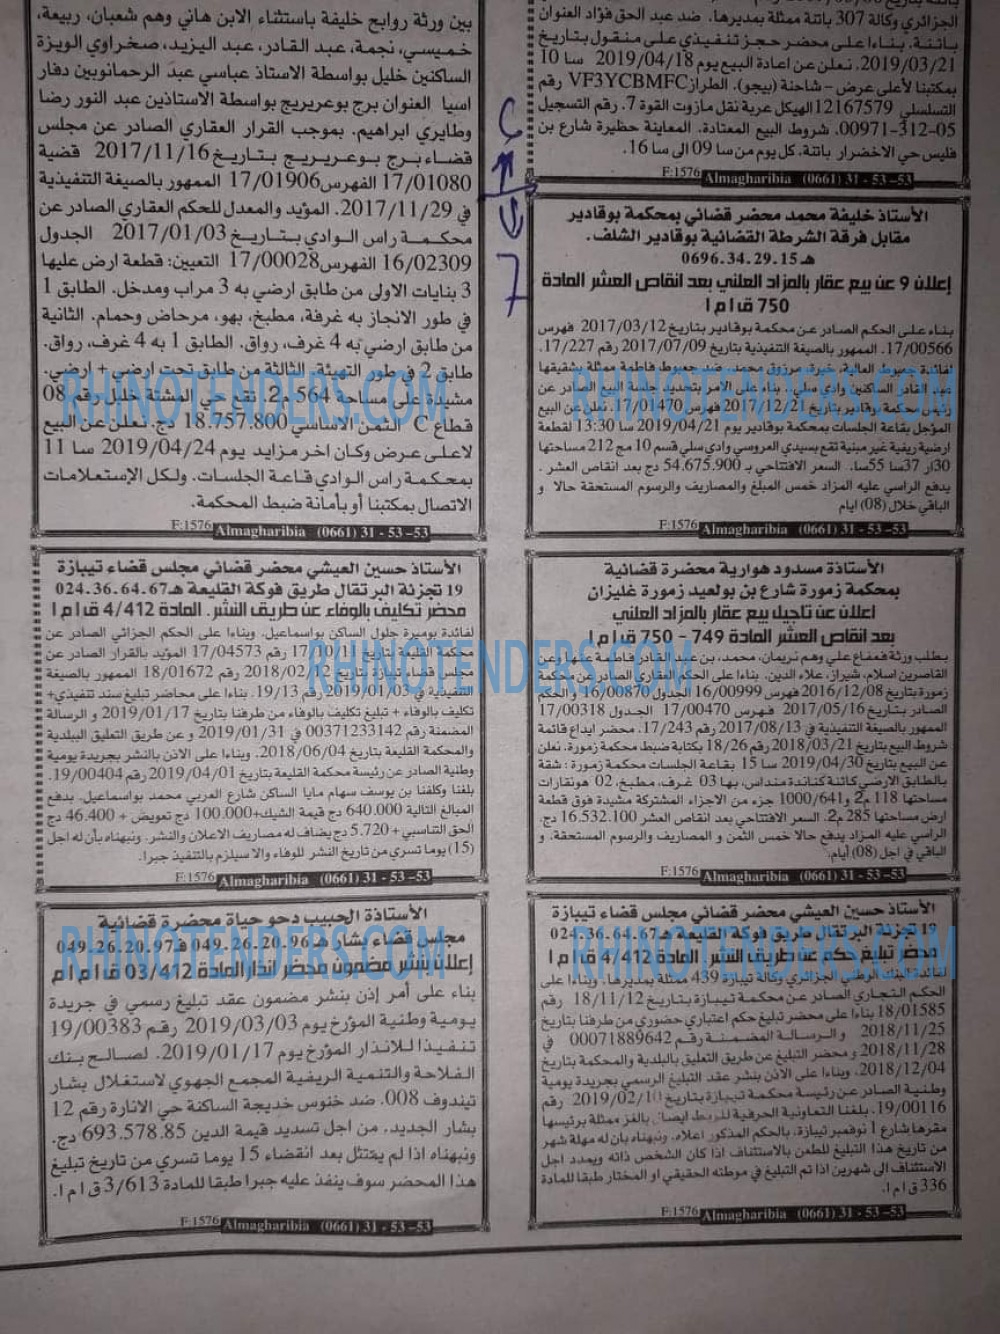 الجزائري وكالة 307 باتنة ممثلة بمديرها. ضد عبد الحق فؤاد العنوان
باتنة. بناءا على محضر حجز تنفيذي على منقول بتاريخ
2019/03/21. نعلن عن اعادة البيع يوم 2019/04/18 سا 10
بمكتبنا لأعلى عرض - شاحنة (بيجو). الطراز VF3YCBMFC رقم
التسلسلي 12167579 الهيكل عربة نقل مازوت القوة 7. رقم التسجيل
00971-312-05. شروط البيع المعتادة. المعاينة حظيرة شارع بن
فليس حي الاخضرار باتنة. كل يوم من سا 09 الى سا 16.
F:1576 Almagharibia (0661) 31 - 53 -53
الأستاذ خليفة محمد محضر قضائي بمحكمة بوقادير
مقابل فرقة الشرطة القضائية بوقادير الشلف.
هـ 0696.34.29.15
إعلان 9 عن بيع عقار بالمزاد العلني بعد انقاص العشر المادة
750 ق ا م ا
بناء على الحكم الصادر عن محكمة بوقادير بتاريخ 2017/03/12 فهرس
17/00566. الممهور بالصيغة التنفيذية بتاريخ 2017/07/09 رقم 17/227.
رئيس محكمة بوقادير بتاريخ 2017/12/21 فهرس 17/01470. نعلن عن البيع
المؤجل بقاعة الجلسات بمحكمة بوقادير يوم 2019/04/21 سا 13:30 لقطعة
ارضية ريفية غير مبنية تقع بسيدي العروسي وادي سلي قسم 10 مج 212 مساحتها
30ار 37سا 55سا. السعر الافتتاحي بـ 54.675.900 دج بعد انقاص العشر.
يدفع الراسي عليه المزاد خمس المبلغ والمصاريف والرسوم المستحقة حالا و
الباقي خلال (08) ايام
F:1576 Almagharibia (0661) 31 - 53 -53
الأستاذة مسدود هوارية محضرة قضائية
بمحكمة زمورة شارع بن بولعيد زمورة غليزان
اعلان عن تاجيل بيع عقار بالمزاد العلني
بعد انقاص العشر المادة 749 - 750 ق ا م ا
بطلب ورثة قمقاع علي وهم نريمان، محمد، بن عبد القادر فاطمة عنها وعن
القاصرين اسلام، شيراز، علاء الدين. بناءا على الحكم العقاري الصادر عن محكمة
زمورة بتاريخ 2016/12/08 فهرس 16/00999 الجدول 16/00870 والحكم
الصادر بتاريخ 2017/05/16 فهرس 17/00470 الجدول 17/00318
الممهور بالصيغة التنفيذية في 2017/08/13 رقم 17/243. محضر ايداع قائمة
شروط البيع بتاريخ 2018/03/21 رقم 18/26 بكتابة ضبط محكمة زمورة. نعلن
عن البيع بتاريخ 2019/04/30 سا 15 بقاعة الجلسات محكمة زمورة: شقة
بالطابق الارضي كائنة كناندة منداس، بها 03 غرف، مطبخ، 02 هونقارات
مساحتها 118 م2 و1000/641 جزء من الاجزاء المشتركة مشيدة فوق قطعة
ارض مساحتها 285 م2. السعر الافتتاحي بعد انقاص العشر 16.532.100 دج.
الراسي عليه المزاد يدفع حالا خمس الثمن و المصاريف والرسوم المستحقة. و
الباقي في اجل (08) أيام.
F:1576 Almagharibia (0661) 31 - 53 -53
الأستاذ حسين العيشي محضر قضائي مجلس قضاء تيبازة
19 تجزئة البرتقال طريق فوكة القليعة هـ 024.36.64.67
محضر تبليغ حكم عن طريق النشر. المادة 4/412 ق ا م ا
لفائدة البنك الوطني الجزائري وكالة تيبازة 439 ممثلة بمديرها. وبناءا على
الحكم التجاري الصادر عن محكمة تيبازة بتاريخ 18/11/12 رقم
18/01585 بناءا على محضر تبليغ حكم اعتباري حضوري من طرفنا بتاريخ
2018/11/25 والرسالة المضمنة رقم 00071889642 في
2018/11/28 و محضر التبليغ عن طريق التعليق بالبلدية والمحكمة بتاريخ
2018/12/04. وبناءا على الاذن بنشر عقد التبليغ الرسمي بجريدة يومية
وطنية الصادر عن رئيسة محكمة تيبازة بتاريخ 2019/02/10 رقم
19/00116. بلغنا التعاونية الحرفية للربط ايصال بالغز ممثلة برئيسها
مقرها شارع 1 نوفمبر تيبازة. بالحكم المذكور اعلاه. ونبهناه بان له مهلة شهر
من تاريخ هذا التبليغ للطعن بالاستئناف اذا كان الشخص ذاته ويمدد اجل
الاستئناف الى شهرين اذا تم التبليغ في موطنه الحقيقي او المختار طبقا للمادة
336 ق ا م ا.
F:1576 Almagharibia (0661) 31 - 53 -53
بين ورثة روابح خليفة باستثناء الابن هاني وهم شعبان، ربيعة،
خميسي، نجمة، عبد القادر، عبد اليزيد، صخراوي الويزة
الساكنين خليل بواسطة الاستاذ عباسي عبد الرحمانوبين دفار
اسيا العنوان برج بوعريريج بواسطة الاستاذين عبد النور رضا
وطايري ابراهيم. بموجب القرار العقاري الصادر عن مجلس
قضاء برج بوعريريج بتاريخ 2017/11/16 قضية
17/01080 الفهرس 17/01906 الممهور بالصيغة التنفيذية
في 2017/11/29. المؤيد والمعدل للحكم العقاري الصادر عن
محكمة راس الوادي بتاريخ 2017/01/03 الجدول
16/02309 الفهرس 17/00028 التعيين: قطعة ارض عليها
3 بنايات الاولى من طابق ارضي به 3 مراب ومدخل. الطابق 1
في طور الانجاز به غرفة، مطبخ، بهو، مرحاض وحمام. الثانية
من طابق ارضي به 4 غرف، رواق. الطابق 1 به 4 غرف، رواق.
طابق 2 في طور التهيئة. الثالثة من طابق تحت ارضي + ارضي.
مشيدة على مساحة 564 م2. تقع حي المشتة خليل رقم 08
قطاع C الثمن الاساسي 18.757.800 دج. نعلن عن البيع
لاعلى عرض وكان اخر مزايد يوم 2019/04/24 سا 11
بمحكمة راس الوادي قاعة الجلسات. ولكل الإستعلامات
الاتصال بمكتبنا أو بأمانة ضبط المحكمة.
F:1576 Almagharibia (0661) 31 - 53 -53
الأستاذ حسين العيشي محضر قضائي مجلس قضاء تيبازة
19 تجزئة البرتقال طريق فوكة القليعة هـ 024.36.64.67
محضر تكليف بالوفاء عن طريق النشر. المادة 4/412 ق ا م ا
لفائدة بوميرة جلول الساكن بواسماعيل. وبناءا على الحكم الجزائي الصادر عن
محكمة القليعة بتاريخ 17/10/11 رقم 17/04573 المؤيد بالقرار الصادر عن
مجلس قضاء تيبازة بتاريخ 2018/02/12 رقم 18/01672 الممهور بالصيغة
التنفيذية في 2019/01/03 رقم 19/13. بناءا على محاضر تبليغ سند تنفيذي+
تكليف بالوفاء + تبليغ تكليف بالوفاء من طرفنا بتاريخ 2019/01/17 و الرسالة
المضمنة رقم 00371233142 في 2019/01/31 و عن طريق التعليق البلدية
والمحكمة القليعة بتاريخ 2018/06/04. وبناءا على الاذن بالنشر بجريدة يومية
وطنية الصادر عن رئيسة محكمة القليعة بتاريخ 2019/04/01 رقم 19/00404.
بلغنا وكلفنا بن يوسف سهام مايا الساكن شارع العربي محمد بواسماعيل. بدفع
المبالغ التالية 640.000 دج قيمة الشيك+100.000 دج تعويض + 46.400 دج
الحق التناسبي + 5.720 دج يضاف له مصاريف الاعلان والنشر. ونبهناه بأن له اجل
(15) يوما تسري من تاريخ النشر للوفاء والا سيلزم بالتنفيذ جبرا.
F:1576 Almagharibia (0661) 31 - 53 -53
الأستاذة الحبيب دحو حياة محضرة قضائية
مجلس قضاء بشار هـ 049.26.20.96 ف 049.26.20.97
إعلان بنشر مضمون محضر انذار المادة 03/412 ق ا م ا
بناء على أمر إذن بنشر مضمون عقد تبليغ رسمي في جريدة
يومية وطنية المؤرخ يوم 2019/03/03 رقم 19/00383
تنفيذا للانذار المؤرخ يوم 2019/01/17. لصالح بنك
الفلاحة والتنمية الريفية المجمع الجهوي لاستغلال بشار
تيندوف 008. ضد خنوس خديجة الساكنة حي الانارة رقم 12
بشار الجديد. من اجل تسديد قيمة الدين 693.578.85 دج.
ونبهناه اذا لم يمتثل بعد انقضاء 15 يوما تسري من تاريخ تبليغ
هذا المحضر سوف ينفذ عليه جبرا طبقا للمادة 3/613 ق ا م ا.
F:1576 Almagharibia (0661) 31 - 53 -53
7
RHINOTENDERS.COM
RHINOTENDERS.COM
RHINOTENDERS.COM
RHINOTENDERS.COM
RHINOTENDERS.COM